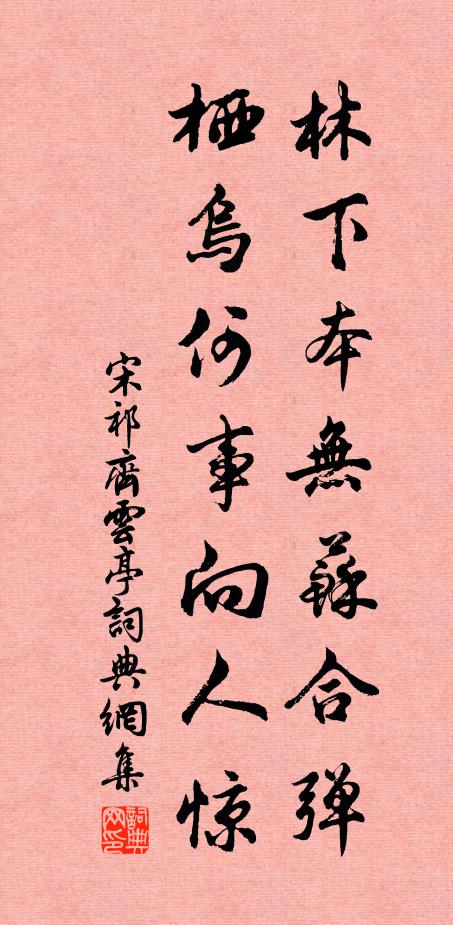 林下本無蘇合弹
栖烏何事向人惊
宋祁齊雲亭詞典網集
詞典网印